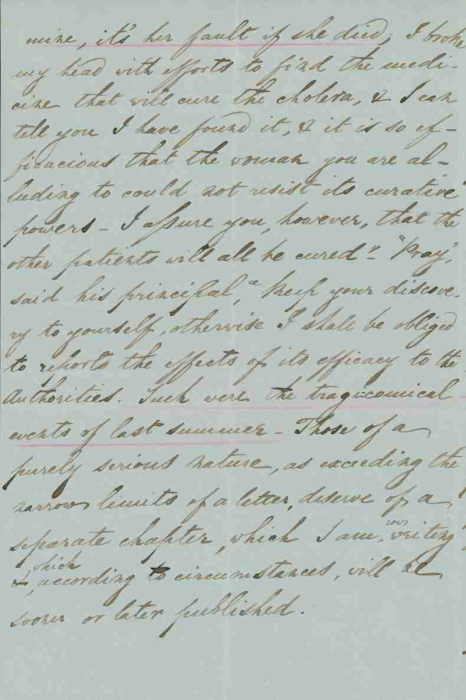 mine, it's her fault if she died; I broke
my head with efforts to find the medi-
cine that will cure the cholera, & I can
tell you I have found it, & it is so ef-
ficacious that the woman you are al-
luding to could not resist its curative
powers - I assure you, however, that the
other patients will all be cured" - "Pray",
said his principal, "keep your discove-
ry to yourself, otherwise I shall be obliged
to reports the effects of its efficacy to the
Authorities. Such were the tragicomical
events of last summer - Those of a
purely serious nature, as exceeding the
narrow limits of a letter, deserve of a
separate chapter, which I am now writing
& which, according to circumstances, will be
sooner or later published.